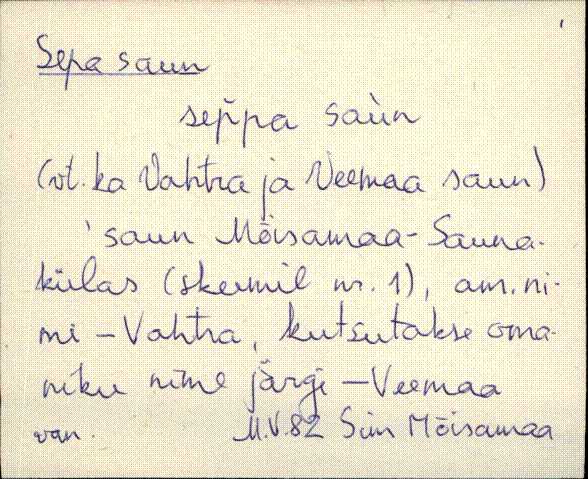 Sepa saun
sep̀pa saùn
(vt. ka Vahtra ja Veemaa saun)
'saun Mõisamaa-Sauna-
külas (skeemil nr. 1), am. ni-
mi - Vahtra, kutsutakse oma-
niku nime järgi - Veemaa
van. M.V.82 Siin Mõisamaa